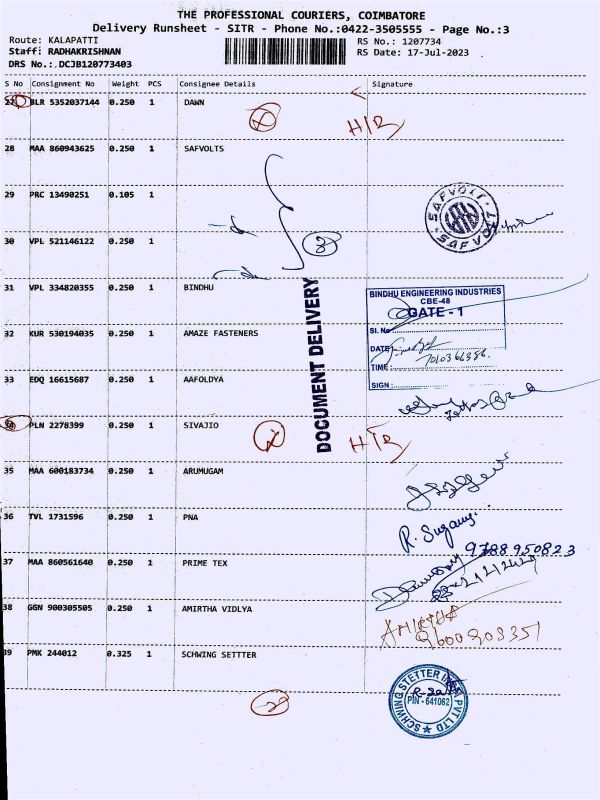 THE PROFESSIONAL COURIERS, COIMBATORE
Delivery Runsheet - SITR - Phone No.:0422-3505555 - Page No.:3
Route: KALAPATTI
RS No.: 1207734
Staff: RADHAKRISHNAN
RS Date: 17-Jul-2023
DRS No.: DCJB120773403
S No Consignment No Weight PCS Consignee Details Signature
27 BLR 5352037144 0.250 1 DAWN
H/R
28 MAA 860943625 0.250 1 SAFVOLTS
29 PRC 13490251 0.105 1
SAFVOLT
SAFVOLT
30 VPL 521146122 0.250 1
31 VPL 334820355 0.250 1 BINDHU
BINDHU ENGINEERING INDUSTRIES
CBE-48
GATE - 1
SI. No
DATE
TIME :
7010366386.
SIGN :
DOCUMENT DELIVERY
32 KUR 530194035 0.250 1 AMAZE FASTENERS
33 EDQ 16615687 0.250 1 AAFOLDYA
34 PLN 2278399 0.250 1 SIVAJIO
H/R
35 MAA 600183734 0.250 1 ARUMUGAM
36 TVL 1731596 0.250 1 PNA
R. Sugany.
9788950823
37 MAA 860561640 0.250 1 PRIME TEX
38 GGN 900305505 0.250 1 AMIRTHA VIDLYA
AMIRTHA
9600903351
39 PMK 244012 0.325 1 SCHWING SETTTER
SCHWING STETTER INDIA PVT LTD
PIN - 641062